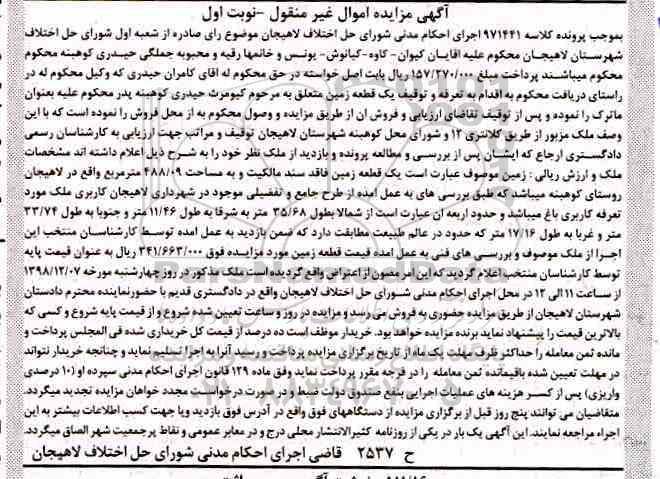 آگهی مزایده اموال غیر منقول -نوبت اول
بموجب پرونده کلاسه ۹۷۱۴۴۱ اجرای احکام مدنی شورای حل اختلاف لاهیجان موضوع رای صادره از شعبه اول شورای حل اختلاف
شهرستان لاهیجان محکوم علیه اقایان کیوان- کاوه-کیانوش- یونس و خانمها رقیه و محبوبه جملگی حیدری کوهبنه محکوم
محکوم میباشند پرداخت مبلغ ۱۵۷/۲۷۰/۰۰۰ ریال بابت اصل خواسته در حق محکوم له اقای کامران حیدری که وکیل محکوم له در
راستای دریافت محکوم به اقدام به تعرفه و توقیف یک قطعه زمین متعلق به مرحوم کیومرث حیدری کوهبنه پدر محکوم علیه بعنوان
ماترک را نموده و پس از توقیف تقاضای ارزیابی و فروش ان از طریق مزایده و وصول محکوم به از محل فروش را نموده است که با این
وصف ملک مزبور از طریق کلانتری ۱۲ و شورای محل کوهبنه شهرستان لاهیجان توقیف و مراتب جهت ارزیابی به کارشناسان رسمی
دادگستری ارجاع که ایشان پس از بررسی و مطالعه پرونده و بازدید از ملک نظر خود را به شرح ذیل اعلام داشته اند مشخصات
ملک و ارزش ریالی : زمین موصوف عبارت است یک قطعه زمین فاقد سند مالکیت و به مساحت ۴۸۸/۰۹ مترمربع واقع در لاهیجان
روستای کوهبنه میباشد که طبق بررسی های به عمل امده از طرح جامع و تفضیلی موجود در شهرداری لاهیجان کاربری ملک مورد
تعرفه کاربری باغ میباشد و حدود اربعه ان عبارت است از شمالا بطول ۳۵/۶۸ متر به شرقا به طول ۱۱/۴۶ متر و جنوبا به طول ۳۳/۷۴
متر و غربا به طول ۱۷/۱۶ متر که حدود در عالم طبیعت مطابقت دارد که ضمن بازدید به عمل امده توسط کارشناسان منتخب این
اجرا از ملک موصوف و بررسی های فنی به عمل امده قیمت قطعه زمین مورد مزایده فوق ۳۴۱/۶۶۳/۰۰۰ ریال به عنوان قیمت پایه
توسط کارشناسان منتخب اعلام گردید که این امر مصون از اعتراض واقع گردیده است ملک مذکور در روز چهارشنبه مورخه ۱۳۹۸/۱۲/۰۷
از ساعت ۱۱ الی ۱۲ در محل اجرای احکام مدنی شورای حل اختلاف لاهیجان واقع در دادگستری قدیم با حضورنماینده محترم دادستان
شهرستان لاهیجان از طریق مزایده حضوری به فروش می رسد و مزایده در روز و ساعت تعیین شده شروع و از قیمت پایه شروع و کسی که
بالاترین قیمت را پیشنهاد نماید برنده مزایده خواهد بود. خریدار موظف است ده درصد از قیمت کل خریداری شده فی المجلس پرداخت و
مانده ثمن معامله را حداکثر ظرف مهلت یک ماه از تاریخ برگزاری مزایده پرداخت و رسید آنرا به اجرا تسلیم نماید و چنانچه خریدار نتواند
در مهلت تعیین شده باقیمانده ثمن معامله را در فرجه مقرر پرداخت نماید وفق ماده ۱۲۹ قانون اجرای احکام مدنی سپرده او (۱۰ درصدی
واریزی) پس از کسر هزینه های عملیات اجرایی بنفع صندوق دولت ضبط و در صورت درخواست مجدد خواهان مزایده تجدید میگردد.
متقاضیان می توانند پنج روز قبل از برگزاری مزایده از دستگاههای فوق واقع در آدرس فوق بازدید ویا جهت کسب اطلاعات بیشتر به این
اجراء مراجعه نمایند. این آگهی یک بار در یکی از روزنامه کثیرالانتشار محلی درج و در معابر عمومی و نقاط پرجمعیت شهر الصاق میگردد.
ح ۲۵۳۷ قاضی اجرای احکام مدنی شورای حل اختلاف لاهیجان